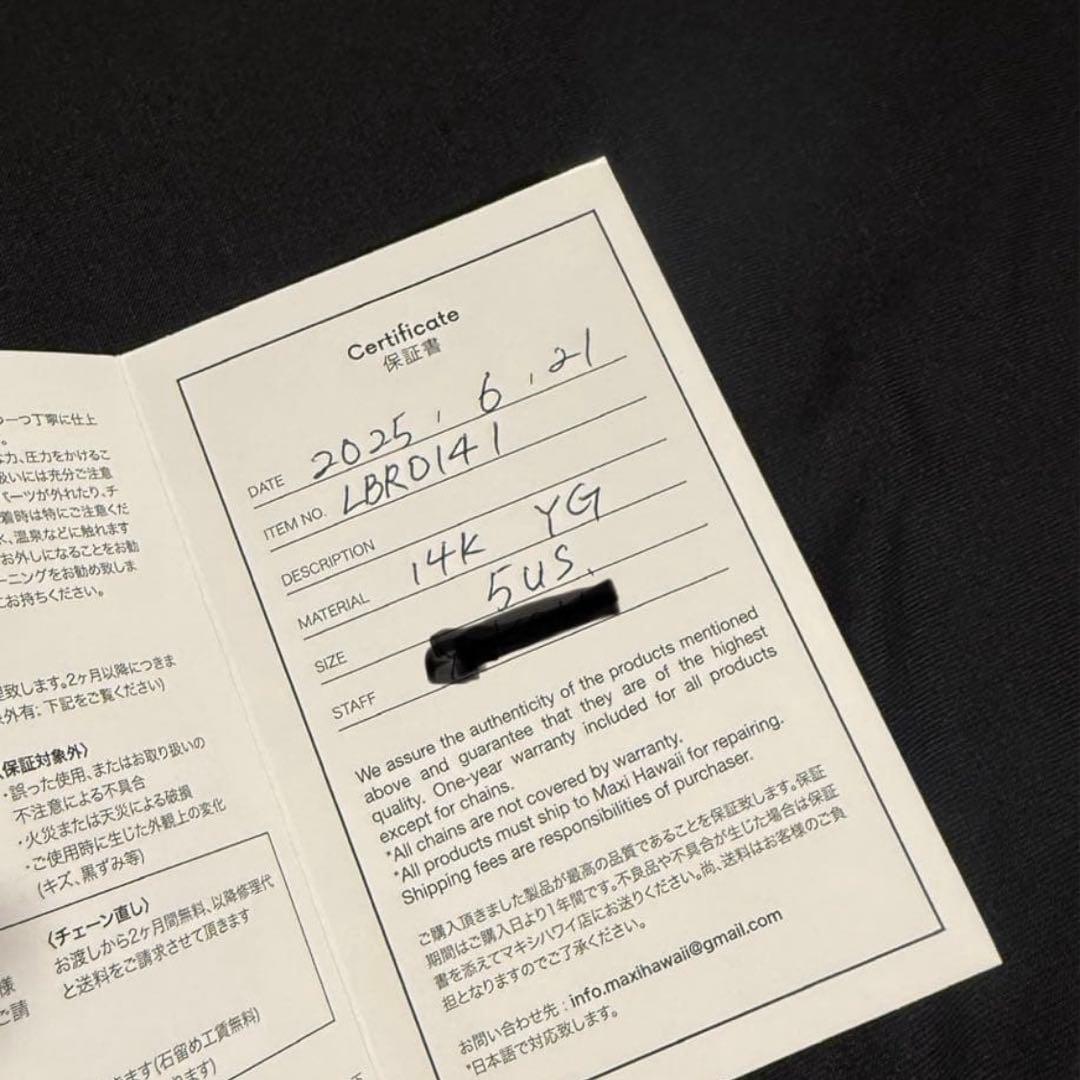 つ一つ丁寧に仕上
。
な力、圧力をかけるこ
扱いには充分ご注意
パーツが外れたり、チ
着時は特にご注意くだ
水、温泉などに触れます
お外しになることをお勧
ーニングをお勧め致しま
にお持ちください。
理致します。2ヶ月以降につきま
外有：下記をご覧ください)
保証対象外〉
・誤った使用、またはお取り扱いの
不注意による不具合
・火災または天災による破損
・ご使用時に生じた外観上の変化
(キズ、黒ずみ等)
〈チェーン直し〉
お渡しから2ヶ月間無料、以降修理代
と送料をご請求させて頂きます
様
ご請
きます(石留め工賃無料)
ります)
Certificate
保証書
DATE 2025, 6, 21
ITEM NO. LBRD141
DESCRIPTION
MATERIAL 14K YG
SIZE 5US.
STAFF
We assure the authenticity of the products mentioned
above and guarantee that they are of the highest
quality. One-year warranty included for all products
except for chains.
*All chains are not covered by warranty.
*All products must ship to Maxi Hawaii for repairing.
Shipping fees are responsibilities of purchaser.
ご購入頂きました製品が最高の品質であることを保証致します。保証
期間はご購入日より1年間です。不良品や不具合が生じた場合は保証
書を添えてマキシハワイ店にお送りください。尚、送料はお客様のご負
担となりますのでご了承ください。
お問い合わせ先：info.maxihawaii@gmail.com
*日本語で対応致します。